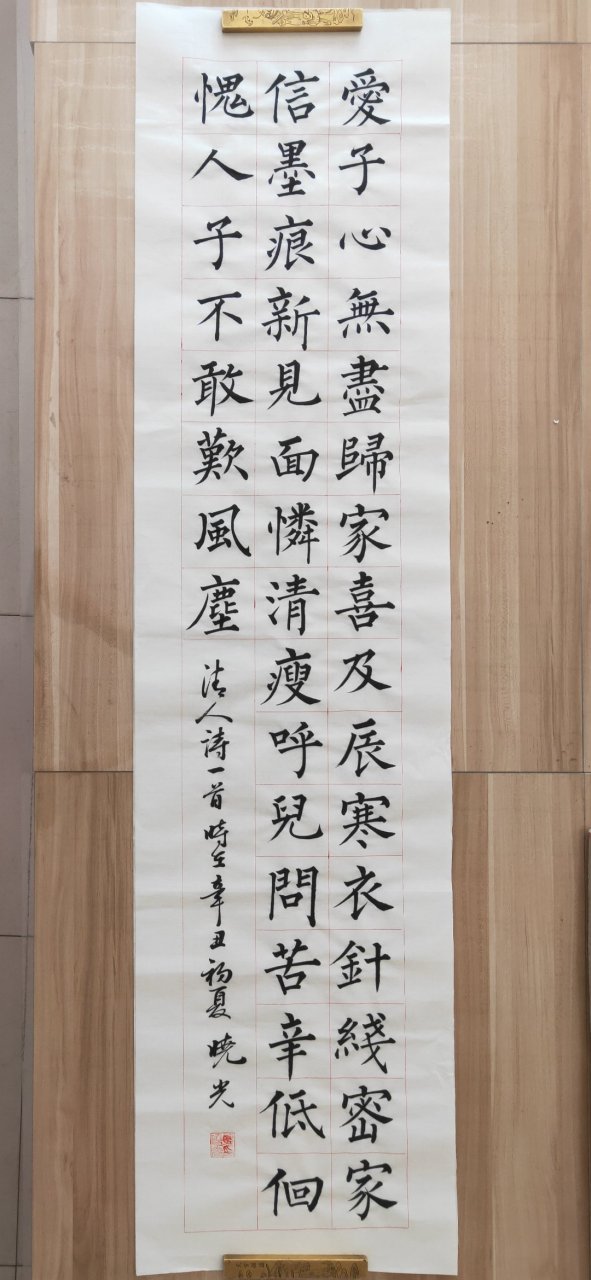 愛子心無盡歸家喜及辰寒衣針綫密家
信墨痕新見面憐清瘦呼兒問苦辛低佪
愧人子不敢歎風塵
清人詩一首時在辛丑初夏曉光